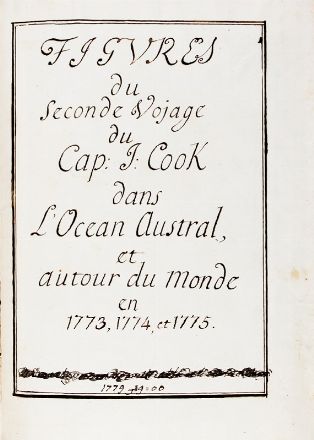 FIGVRES
du
Seconde Vojage
du
Cap: J: Cook
dans
L'Ocean Austral,
et
autour du Monde
en
1773, 1774, et 1775.
1779